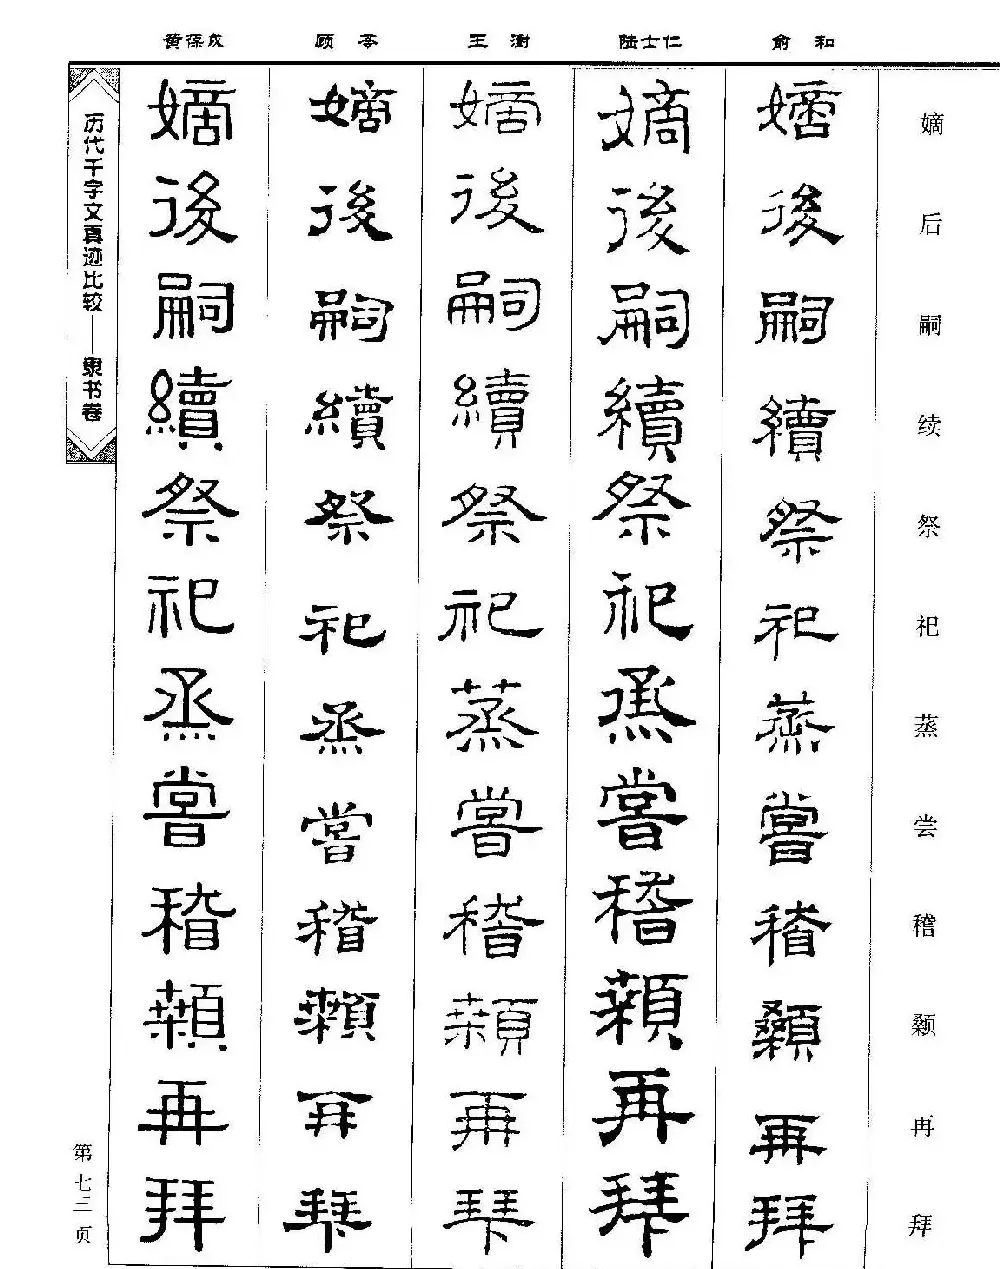 俞和
陆士仁
王澍
顾苓
黄葆戉
嫡后嗣续祭祀蒸尝稽颡再拜
嫡後嗣續祭祀蒸嘗稽顙再拜
嫡後嗣續祭祀烝嘗稽顙再拜
嫡後嗣續祭祀蒸嘗稽顙再拜
嫡後嗣續祭祀烝嘗稽顙再拜
嫡後嗣續祭祀烝嘗稽顙再拜
历代千字文真迹比较——隶书卷
第七三页